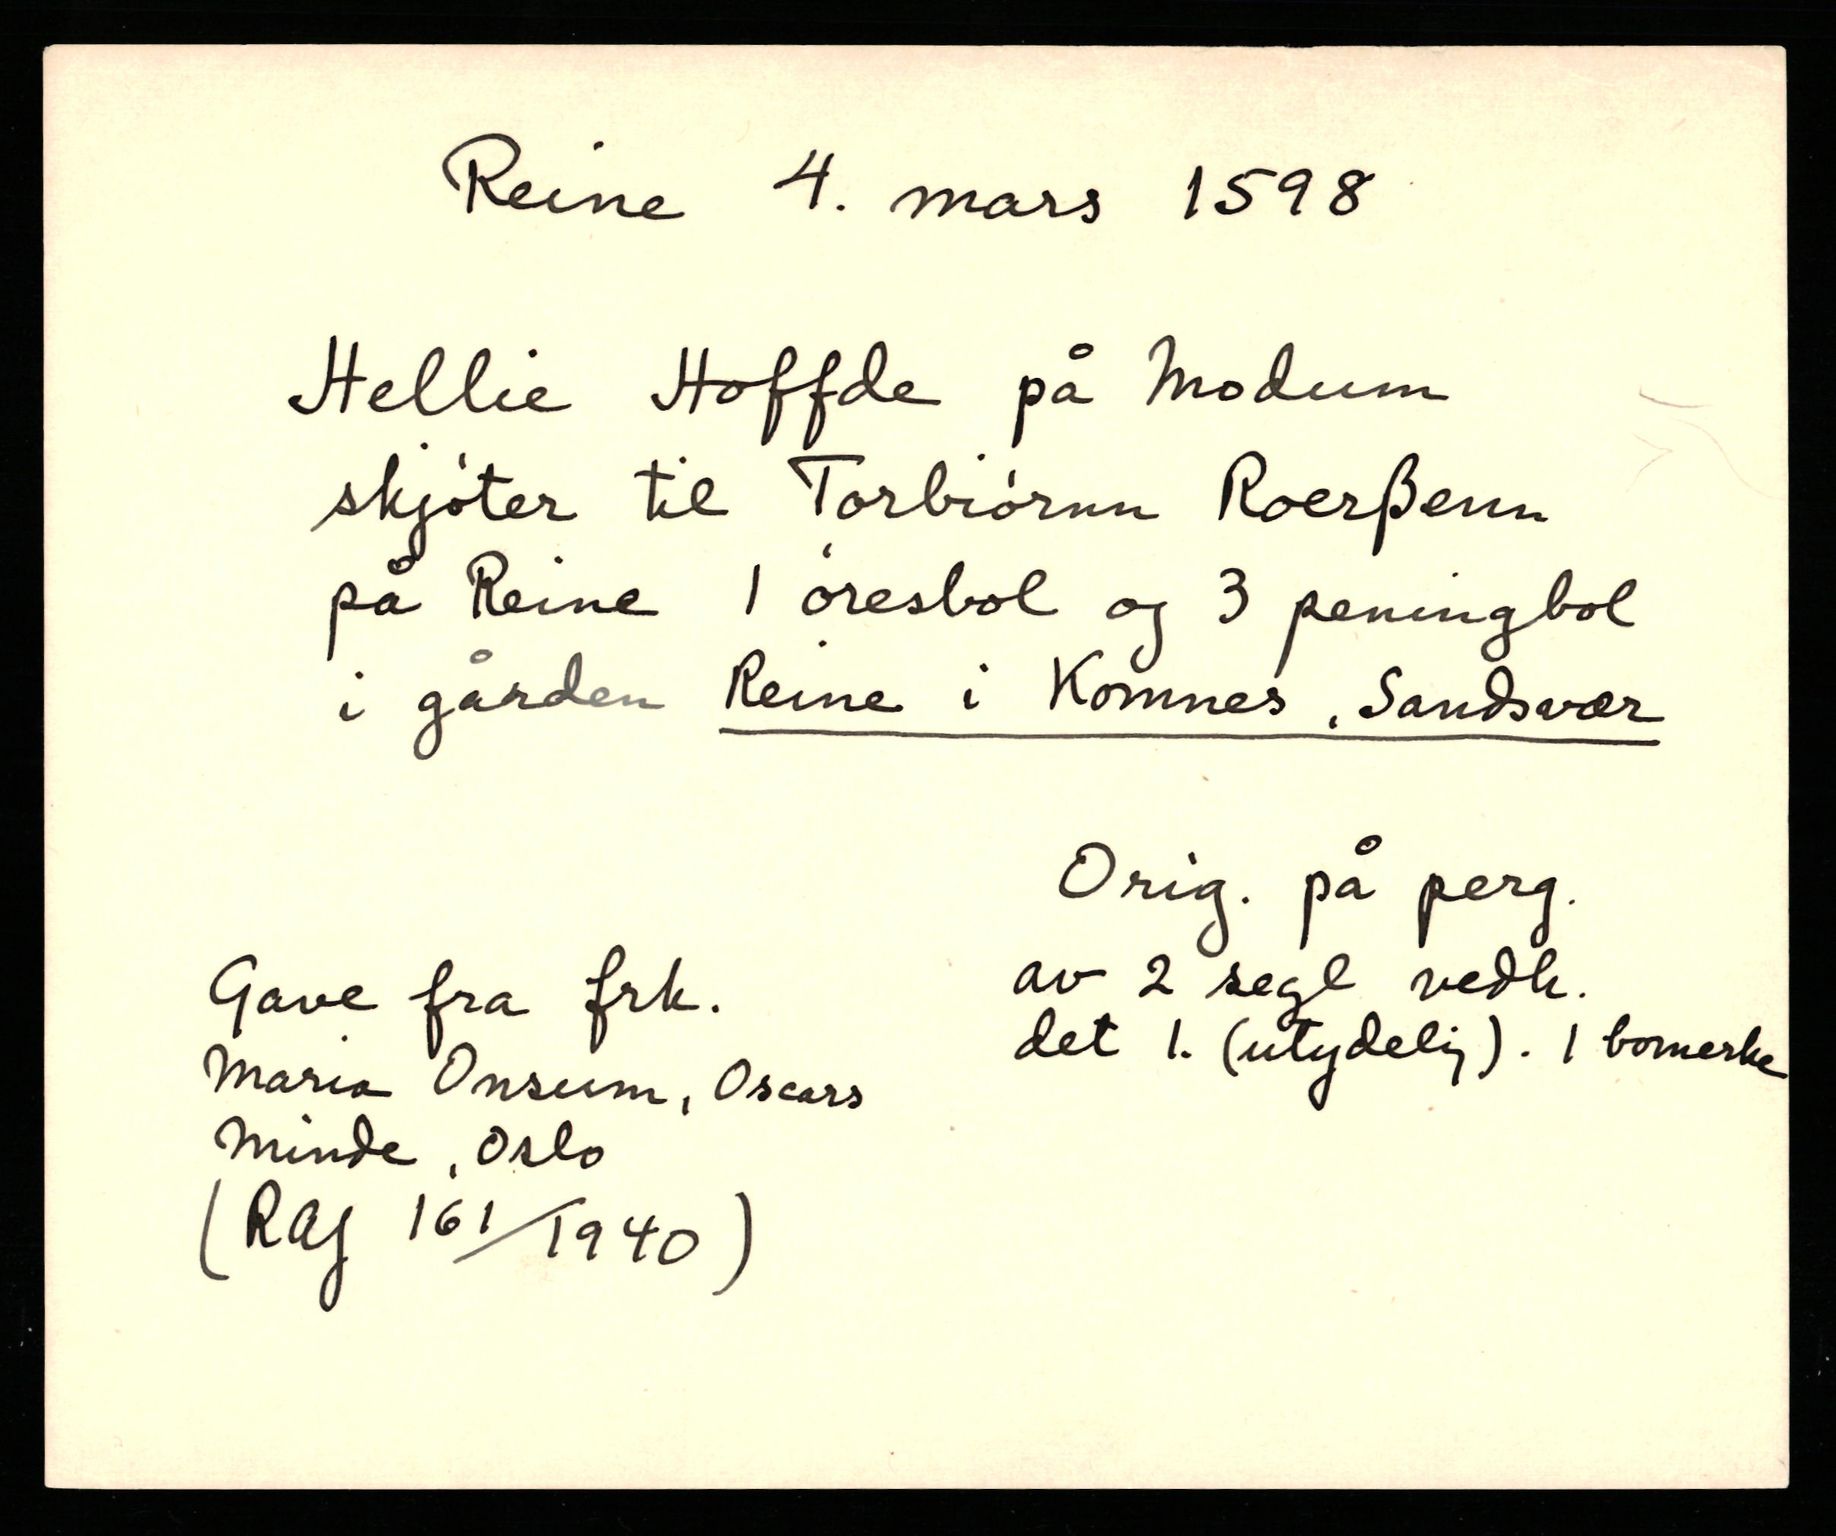 Reine 4. mars 1598
Hellie Hoffde på Modum
skjøter til Torbiørnn Roerßenn
på Reine 1 øresbol og 3 peningbol
i gården Reine i Komnes, Sandsvær
Orig. på perg.
av 2 segl vedh.
det 1. (utydelig). 1 bomerke
Gave fra frk.
Maria Onsum, Oscars
Minde, Oslo
(RAJ 161/1940)